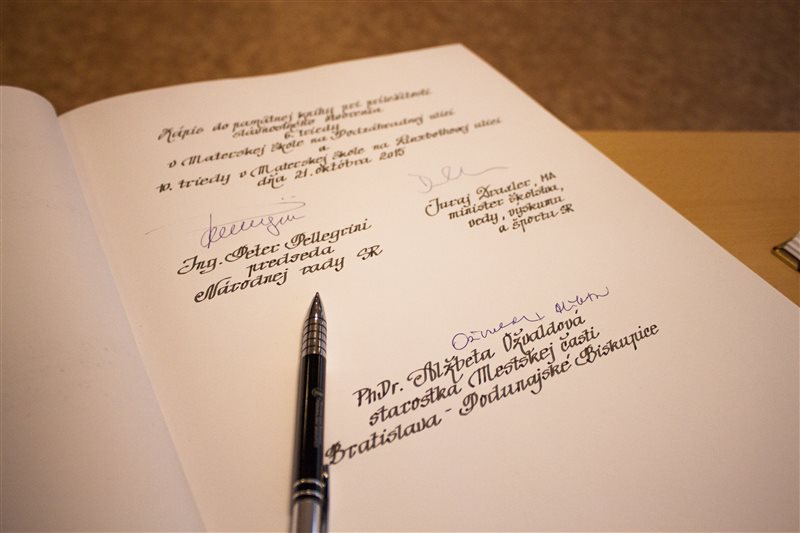 Zápis do pamätnej knihy pri príležitosti
slávnostného otvorenia
6. triedy
v Materskej škole na Podzáhradnej ulici
a
10. triedy v Materskej škole na Linzbothovej ulici
dňa 21. októbra 2015
Ing. Peter Pellegrini
predseda
Národnej rady SR
Juraj Draxler, MA
minister školstva,
vedy, výskumu
a športu SR
PhDr. Alžbeta Ožvaldová
starostka Mestskej časti
Bratislava - Podunajské Biskupice